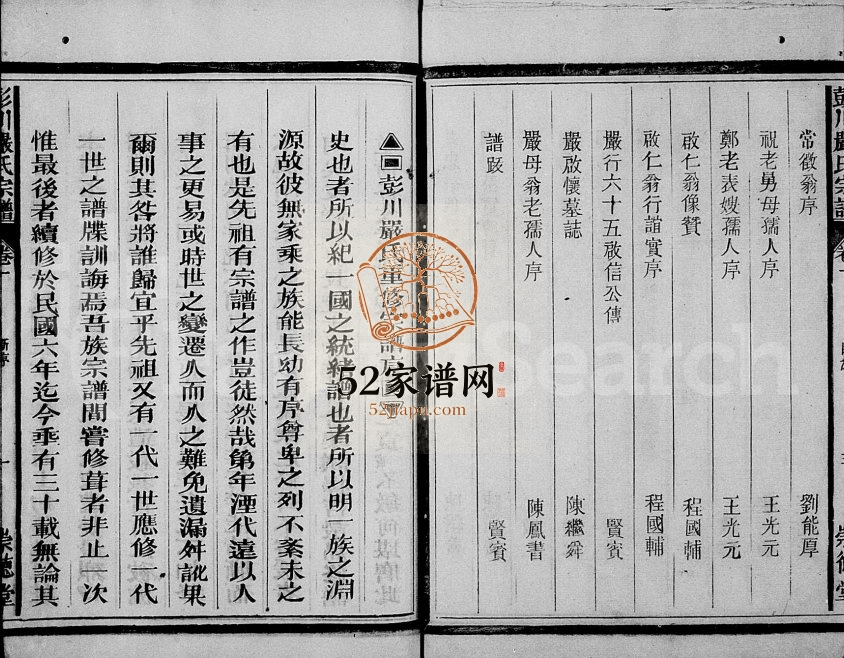 彭川嚴氏宗譜
卷一
常徵翁序 劉能厚
祝老舅母孺人序 王光元
鄭老表嫂孺人序 王光元
啟仁翁像贊 程國輔
啟仁翁行誼實序 程國輔
嚴行六十五啟信公傳 賢賓
嚴啟懷墓誌 陳繼舜
嚴母翁老孺人序 陳鳳書
譜跋 賢賓
彭川嚴氏重修宗譜序
史也者所以紀一國之統緒譜也者所以明一族之淵
源故彼無家乘之族能長幼有序尊卑之列不紊未之
有也是先祖有宗譜之作豈徒然哉第年湮代遠以人
事之更易或時世之變遷人而人之難免遺漏舛訛果
爾則其咎將誰歸宜乎先祖又有一代一世應修一代
一世之譜牒訓誨焉吾族宗譜間嘗修葺者非止一次
惟最後者續修於民國六年迄今乘有三十載無論其
彭川嚴氏宗譜
卷一
新序
一
崇德堂
52家谱网
52jiapu.com